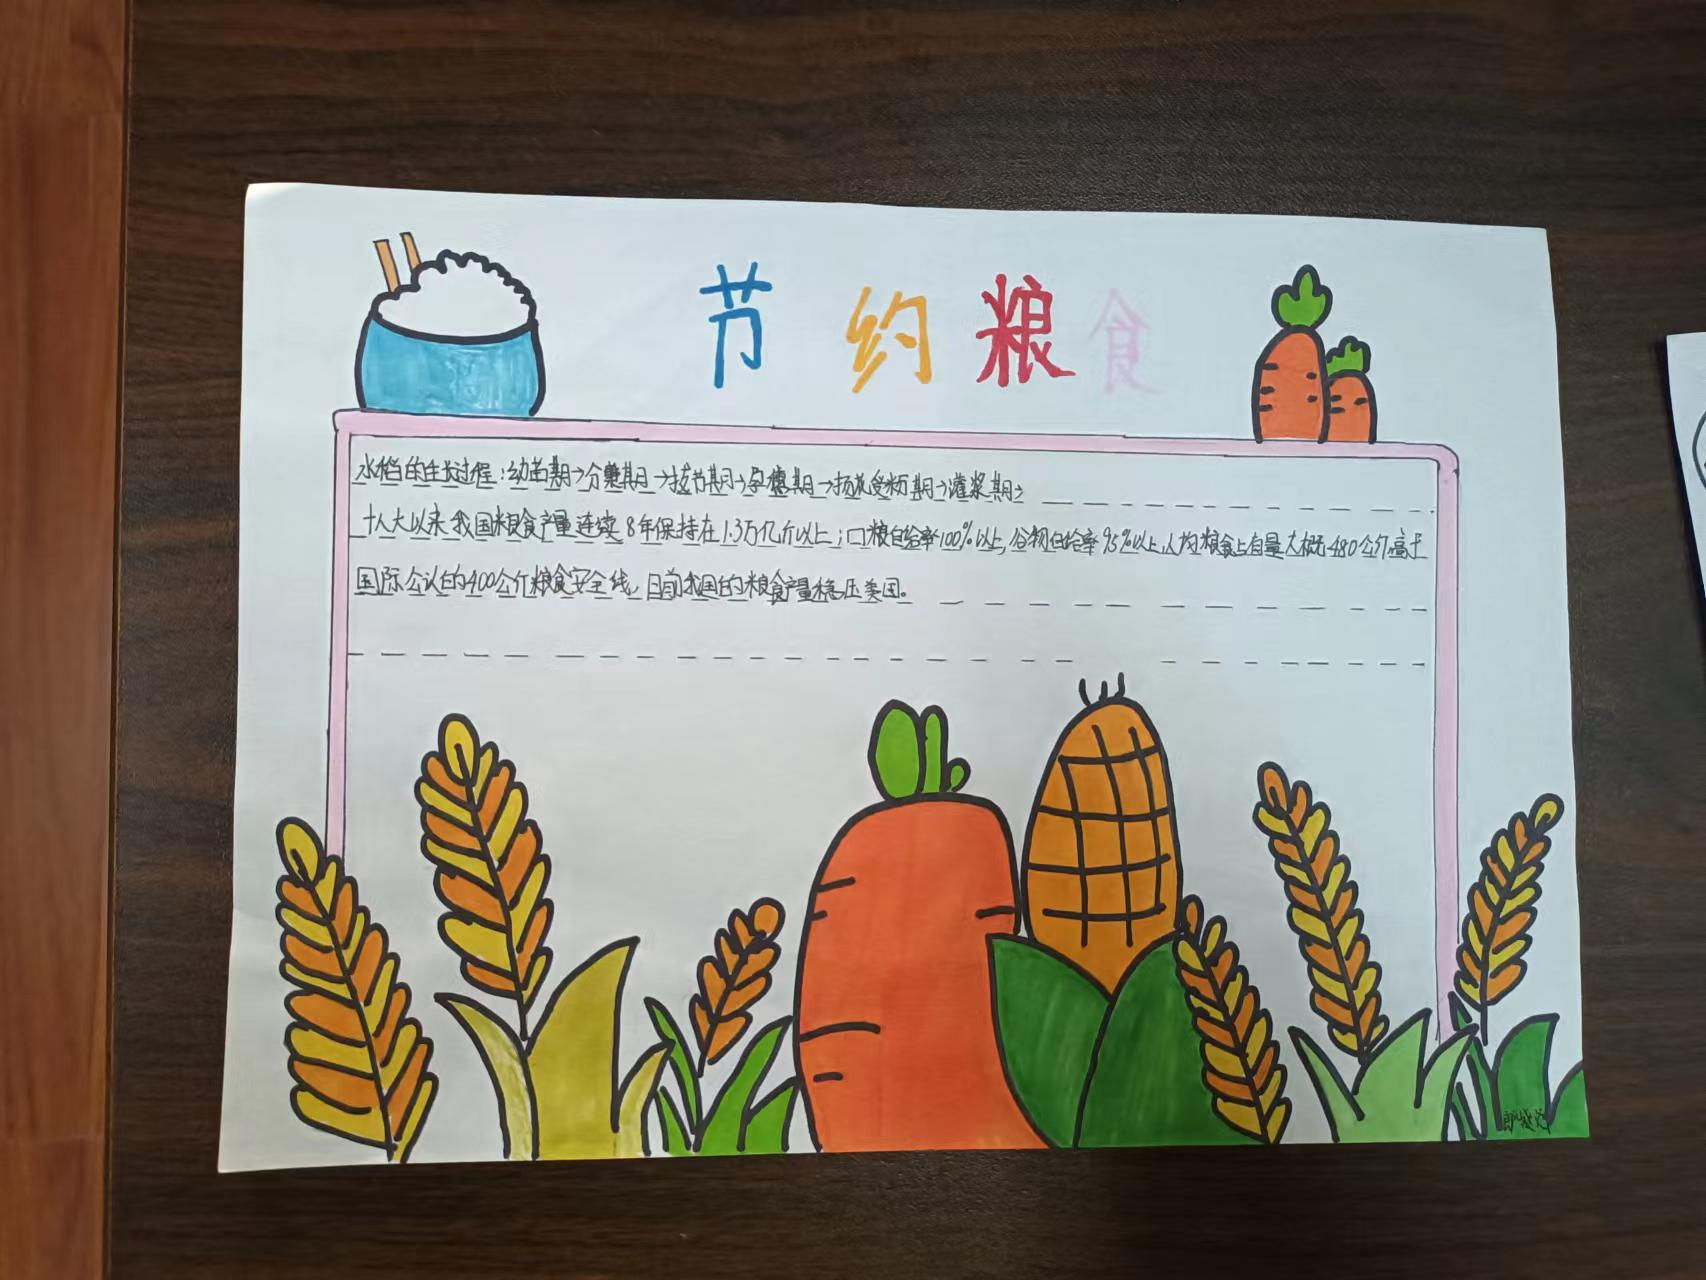 节约粮食
水稻的生长过程:幼苗期→分蘖期→拔节期→孕穗期→扬花受粉期→灌浆期→
十八大以来我国粮食产量连续8年保持在1.3万亿斤以上;口粮自给率100%以上,谷物自给率95%以上,人均粮食占有量大概480公斤高于
国际公认的400公斤粮食安全线,目前我国的粮食产量稳压美国。